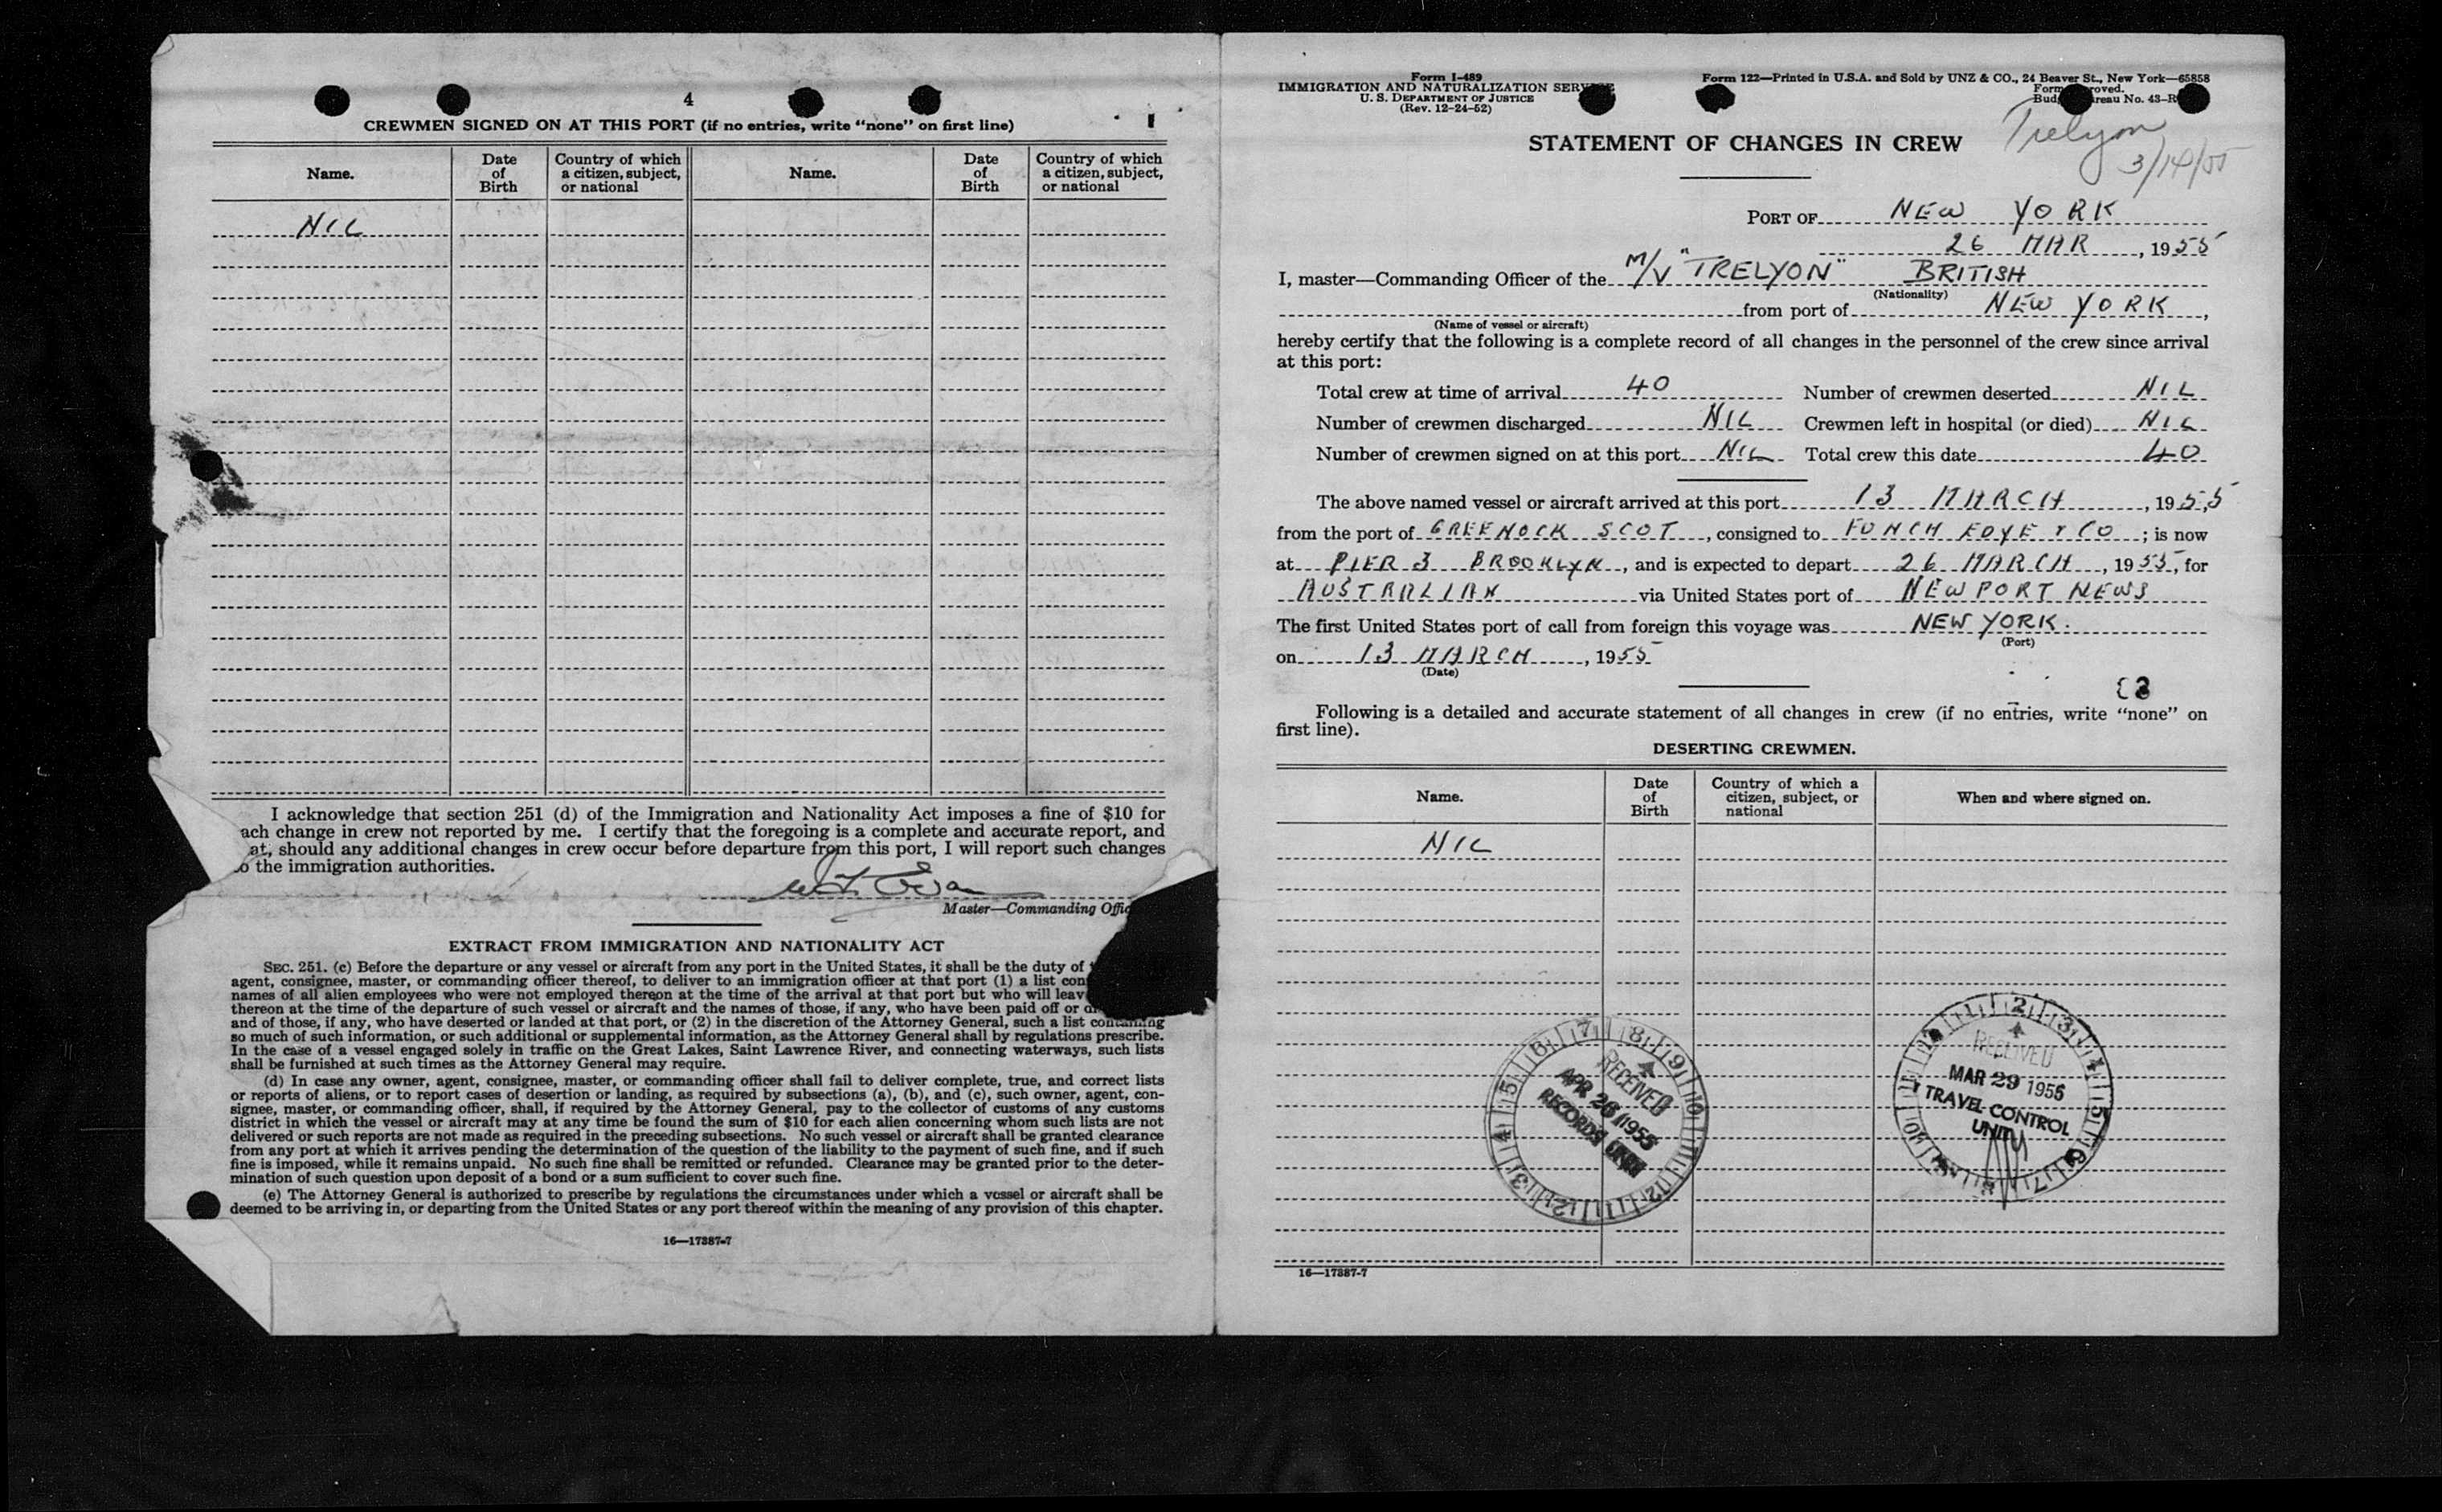 4
CREWMEN SIGNED ON AT THIS PORT (if no entries, write “none” on first line)
Name.
Date of Birth
Country of which a citizen, subject, or national
Name.
Date of Birth
Country of which a citizen, subject, or national
NIL
I acknowledge that section 251 (d) of the Immigration and Nationality Act imposes a fine of $10 for
ach change in crew not reported by me. I certify that the foregoing is a complete and accurate report, and
at, should any additional changes in crew occur before departure from this port, I will report such changes
o the immigration authorities.
Master—Commanding Offic
EXTRACT FROM IMMIGRATION AND NATIONALITY ACT
SEC. 251. (c) Before the departure or any vessel or aircraft from any port in the United States, it shall be the duty of
agent, consignee, master, or commanding officer thereof, to deliver to an immigration officer at that port (1) a list con
names of all alien employees who were not employed thereon at the time of the arrival at that port but who will leav
thereon at the time of the departure of such vessel or aircraft and the names of those, if any, who have been paid off or
and of those, if any, who have deserted or landed at that port, or (2) in the discretion of the Attorney General, such a list containing
so much of such information, or such additional or supplemental information, as the Attorney General shall by regulations prescribe.
In the case of a vessel engaged solely in traffic on the Great Lakes, Saint Lawrence River, and connecting waterways, such lists
shall be furnished at such times as the Attorney General may require.
(d) In case any owner, agent, consignee, master, or commanding officer shall fail to deliver complete, true, and correct lists
or reports of aliens, or to report cases of desertion or landing, as required by subsections (a), (b), and (c), such owner, agent, con-
signee, master, or commanding officer, shall, if required by the Attorney General, pay to the collector of customs of any customs
district in which the vessel or aircraft may at any time be found the sum of $10 for each alien concerning whom such lists are not
delivered or such reports are not made as required in the preceding subsections. No such vessel or aircraft shall be granted clearance
from any port at which it arrives pending the determination of the question of the liability to the payment of such fine, and if such
fine is imposed, while it remains unpaid. No such fine shall be remitted or refunded. Clearance may be granted prior to the deter-
mination of such question upon deposit of a bond or a sum sufficient to cover such fine.
(e) The Attorney General is authorized to prescribe by regulations the circumstances under which a vessel or aircraft shall be
deemed to be arriving in, or departing from the United States or any port thereof within the meaning of any provision of this chapter.
16—17387-7
Form I-489
IMMIGRATION AND NATURALIZATION SERV
U. S. DEPARTMENT OF JUSTICE
(Rev. 12-24-52)
Form 122—Printed in U.S.A. and Sold by UNZ & CO., 24 Beaver St., New York—65858
Form roved.
Bud reau No. 43-R
Trelyon
3/14/55
STATEMENT OF CHANGES IN CREW
PORT OF NEW YORK
26 MAR, 1955
I, master—Commanding Officer of the M/V "TRELYON" BRITISH
(Nationality)
from port of NEW YORK,
(Name of vessel or aircraft)
hereby certify that the following is a complete record of all changes in the personnel of the crew since arrival
at this port:
Total crew at time of arrival 40 Number of crewmen deserted NIL
Number of crewmen discharged NIL Crewmen left in hospital (or died) NIL
Number of crewmen signed on at this port NIL Total crew this date 40
The above named vessel or aircraft arrived at this port 13 MARCH, 1955
from the port of GREENOCK SCOT, consigned to FUNCH EDYE & CO; is now
at PIER 3 BROOKLYN, and is expected to depart 26 MARCH, 1955, for
AUSTRALIAN via United States port of NEWPORT NEWS
The first United States port of call from foreign this voyage was NEW YORK.
(Port)
on 13 MARCH, 1955
(Date)
Following is a detailed and accurate statement of all changes in crew (if no entries, write “none” on
first line).
DESERTING CREWMEN.
Name.
Date of Birth
Country of which a citizen, subject, or national
When and where signed on.
NIL
RECEIVED
APR 26 1955
RECORDS UNIT
RECEIVED
MAR 29 1955
TRAVEL CONTROL
UNIT
16—17387-7